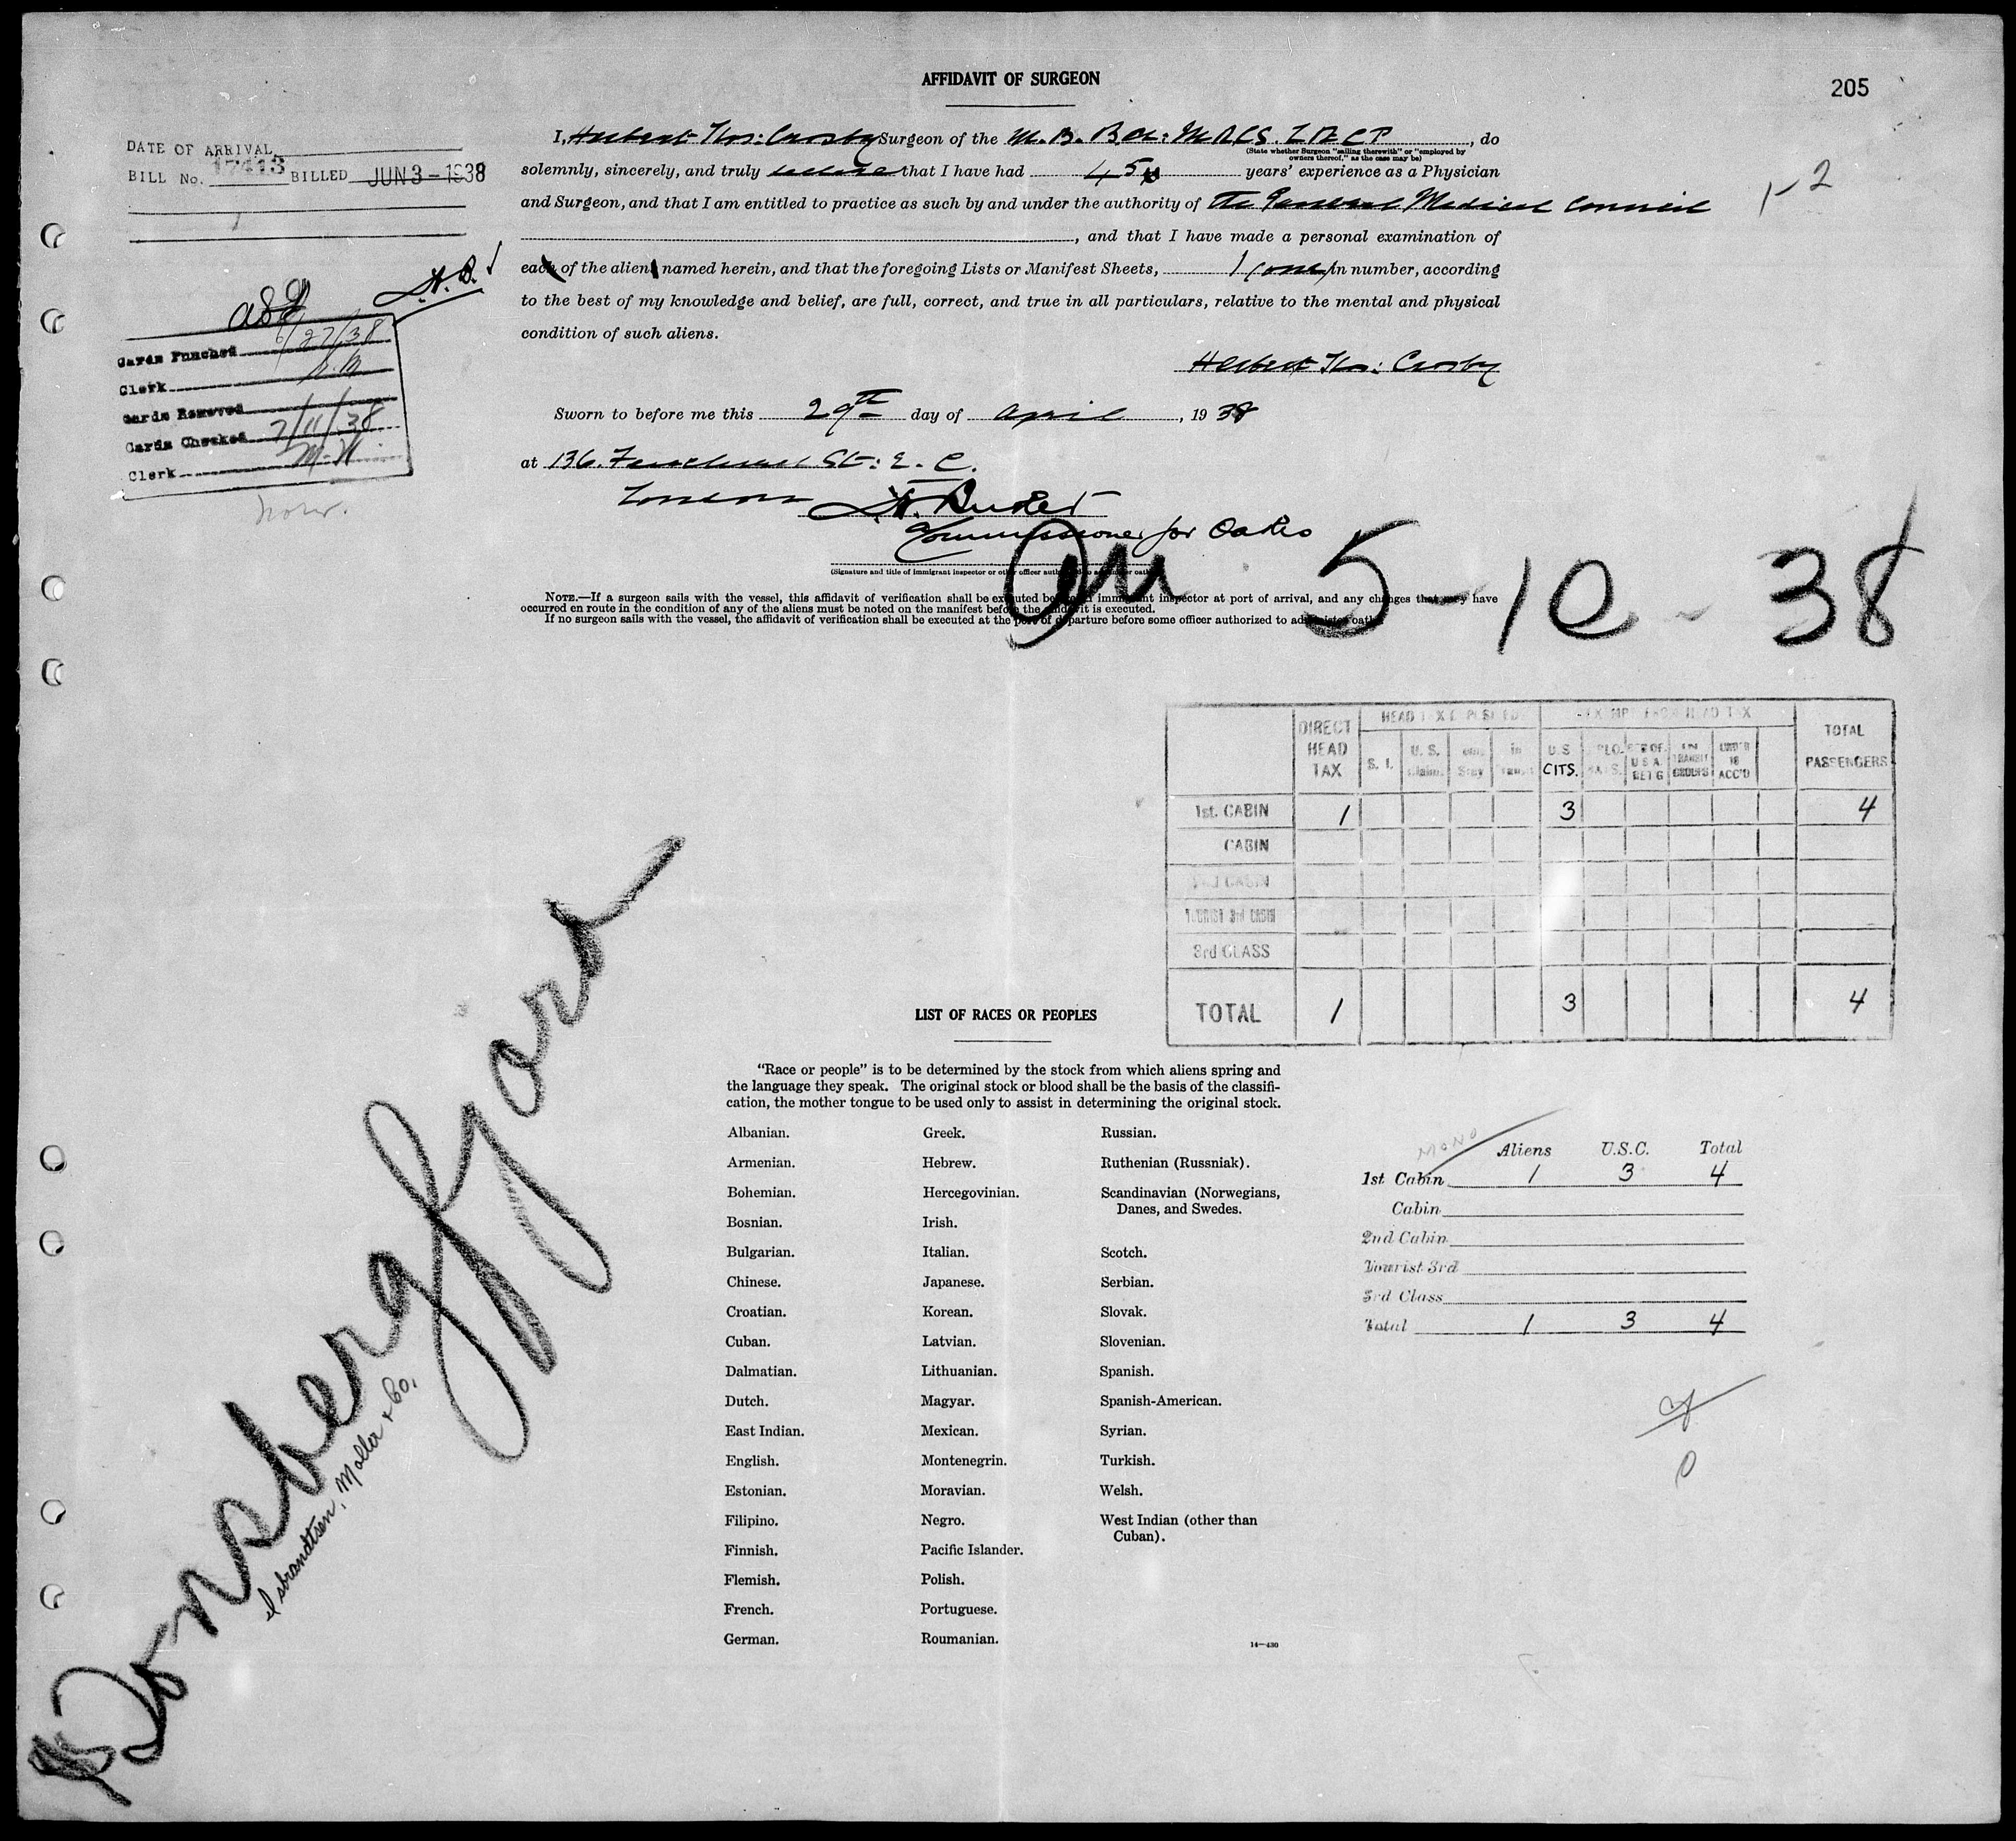 AFFIDAVIT OF SURGEON
205
DATE OF ARRIVAL
BILL No. 17413 BILLED JUN 3-1938
I, Herbert Thos: Crosby Surgeon of the M.B. Bch: MRCS. LRCP, do
(State whether Surgeon "sailing therewith" or "employed by
owners thereof," as the case may be)
solemnly, sincerely, and truly believe that I have had 45 years' experience as a Physician
1-2
and Surgeon, and that I am entitled to practice as such by and under the authority of The General Medical Council
, and that I have made a personal examination of
each of the alien named herein, and that the foregoing Lists or Manifest Sheets, 1 (one) in number, according
to the best of my knowledge and belief, are full, correct, and true in all particulars, relative to the mental and physical
condition of such aliens.
Herbert Thos: Crosby
Cards Punched 6/27/38
Clerk
Cards Removed
Cards Checked 7/11/38
Clerk M.H.
Sworn to before me this 29th day of April, 1938
at 136. Fenchurch St: E.C.
London
Commissioner for Oaths
(Signature and title of immigrant inspector or other officer
5-10-38
NOTE.—If a surgeon sails with the vessel, this affidavit of verification shall be executed before an immigrant inspector at port of arrival, and any changes that may have
occurred en route in the condition of any of the aliens must be noted on the manifest before the affidavit is executed.
If no surgeon sails with the vessel, the affidavit of verification shall be executed at the port of departure before some officer authorized to administer oaths.
DIRECT HEAD TAX
S. I.
U.S. CITS.
UNDER 16 ACC'D
TOTAL PASSENGERS
1st. CABIN 1 3 4
CABIN
2nd CABIN
TOURIST 3rd CABIN
3rd CLASS
TOTAL 1 3 4
Tonsbergfjord
Isbrandtsen, Moller & Co.
LIST OF RACES OR PEOPLES
"Race or people" is to be determined by the stock from which aliens spring and
the language they speak. The original stock or blood shall be the basis of the classifi-
cation, the mother tongue to be used only to assist in determining the original stock.
Albanian. Greek. Russian.
Armenian. Hebrew. Ruthenian (Russniak).
Bohemian. Hercegovinian. Scandinavian (Norwegians,
Danes, and Swedes.
Bosnian. Irish.
Bulgarian. Italian. Scotch.
Chinese. Japanese. Serbian.
Croatian. Korean. Slovak.
Cuban. Latvian. Slovenian.
Dalmatian. Lithuanian. Spanish.
Dutch. Magyar. Spanish-American.
East Indian. Mexican. Syrian.
English. Montenegrin. Turkish.
Estonian. Moravian. Welsh.
Filipino. Negro. West Indian (other than
Cuban).
Finnish. Pacific Islander.
Flemish. Polish.
French. Portuguese.
German. Roumanian.
14—430
MONO
Aliens U.S.C. Total
1st Cabin 1 3 4
Cabin
2nd Cabin
Tourist 3rd
3rd Class
Total 1 3 4